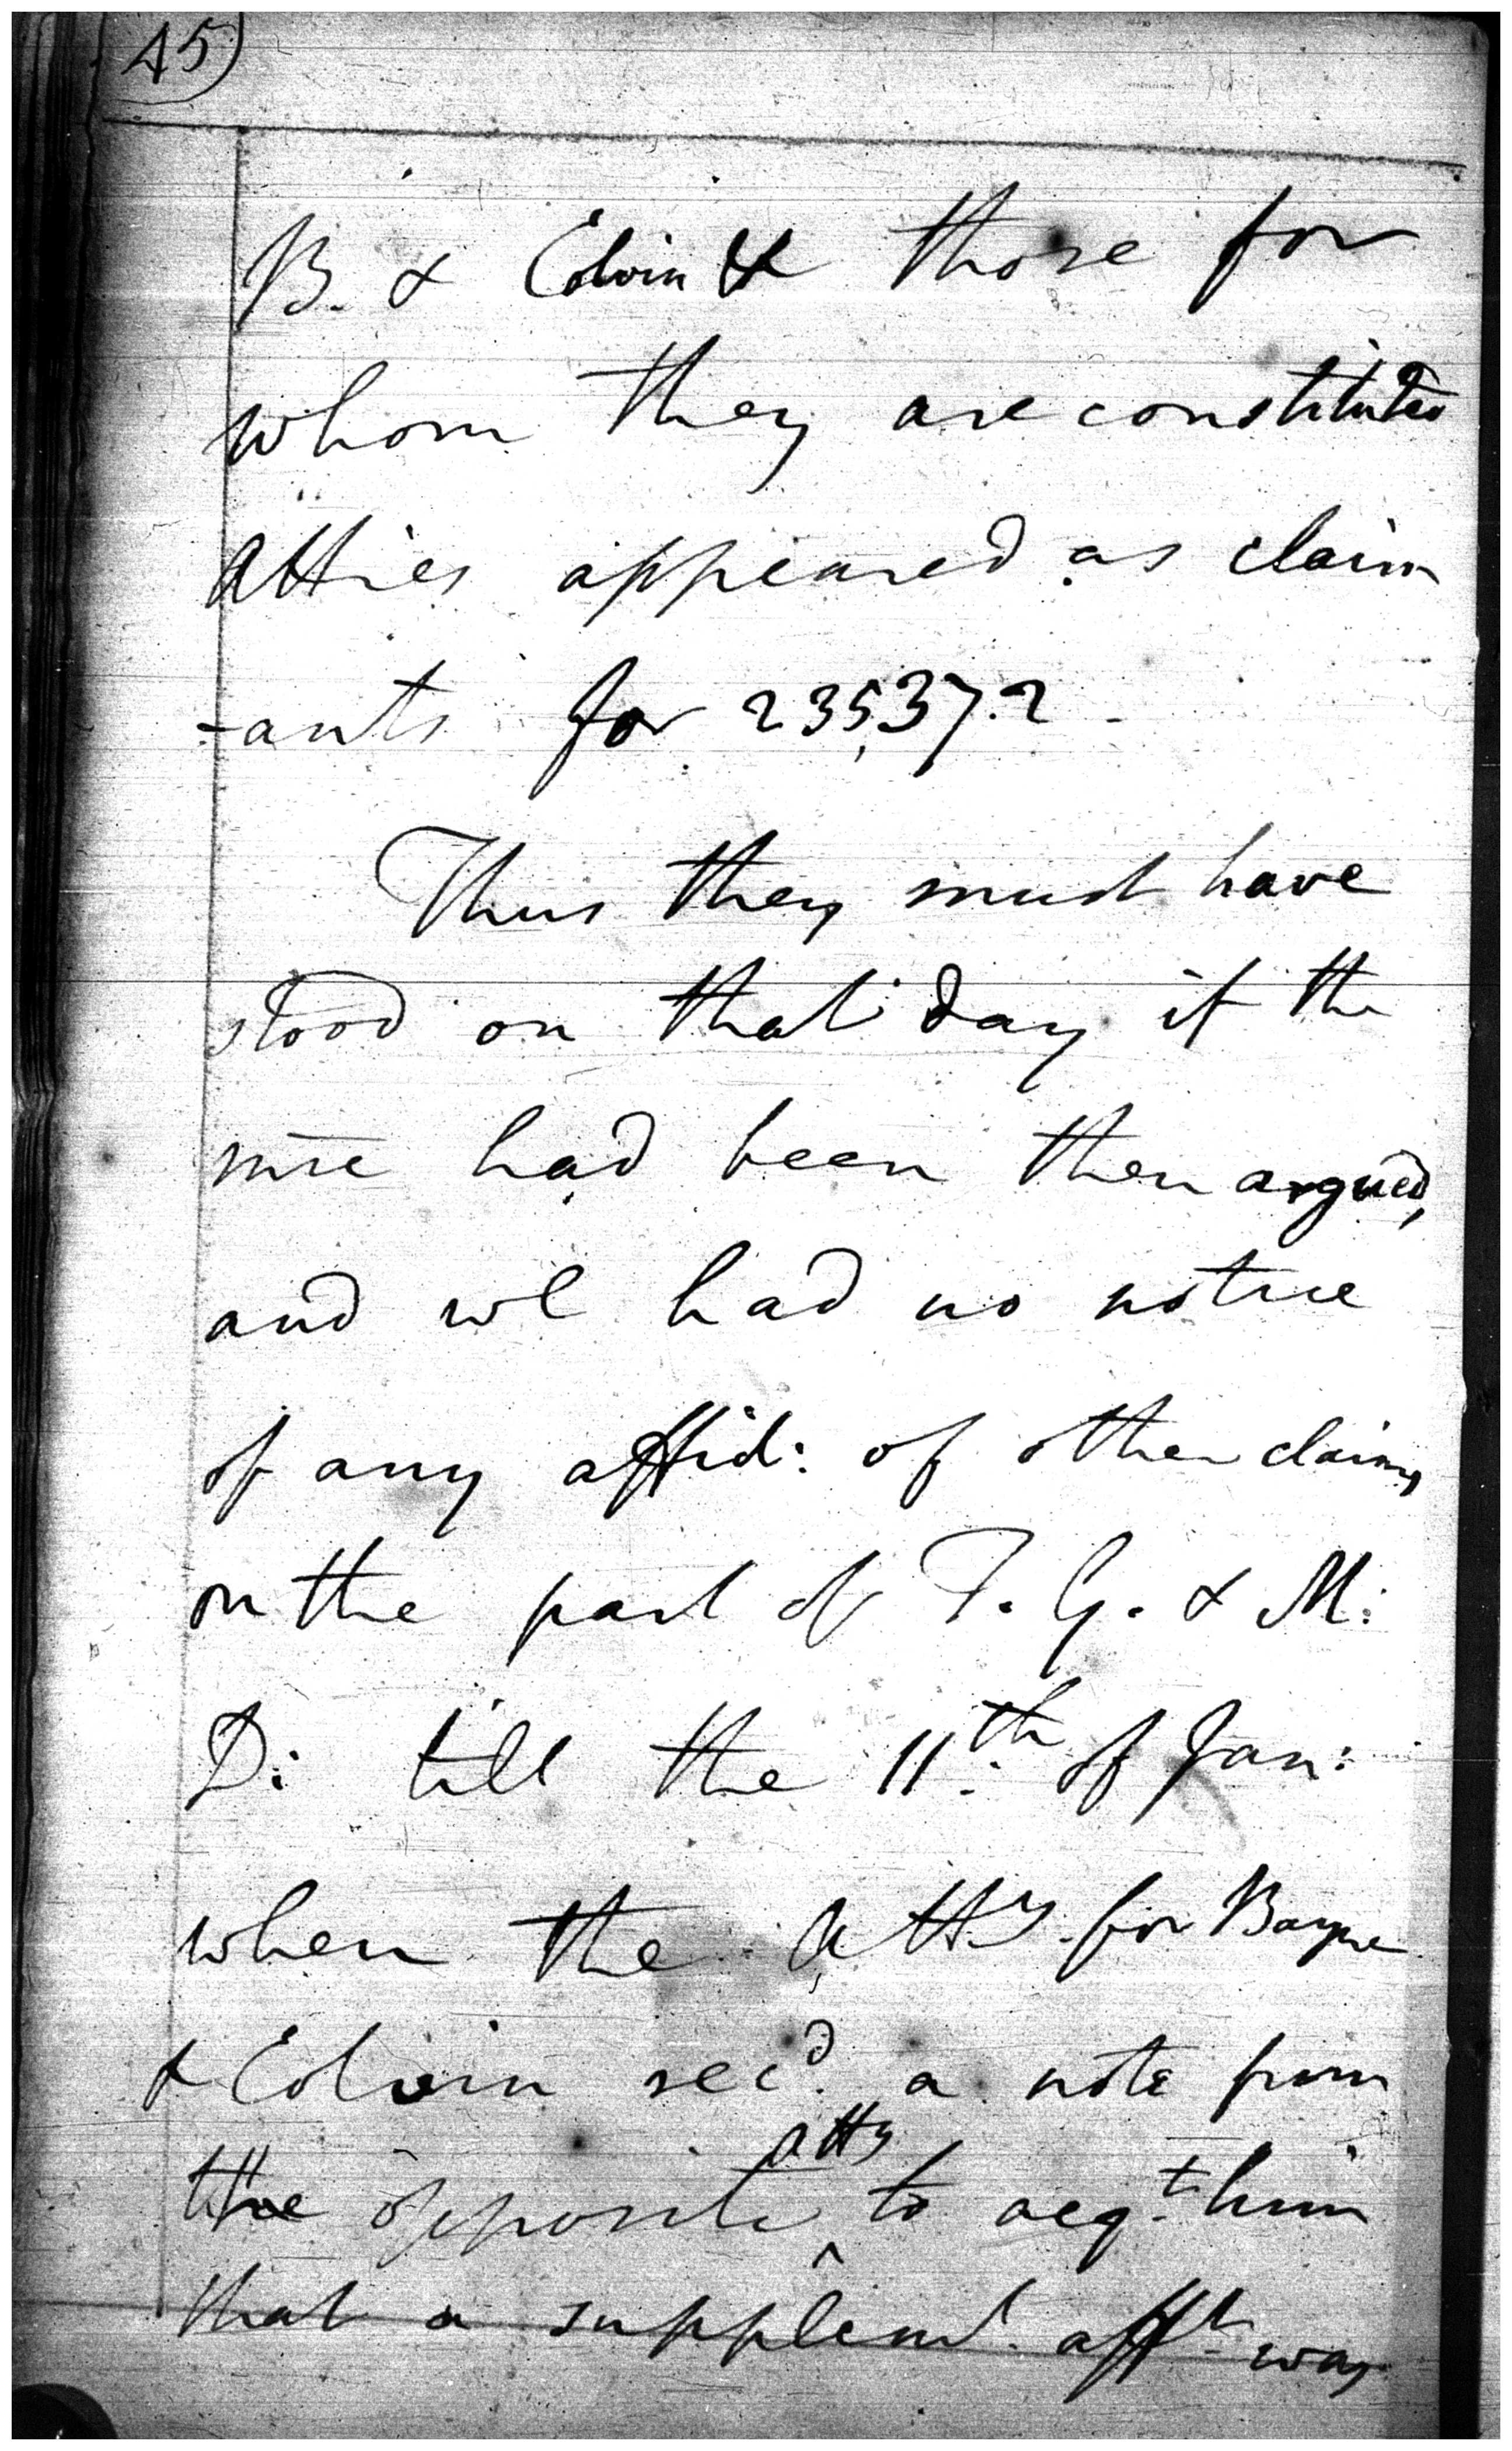 45)
B. & Colvin & those for
whom they are constituted
Atties appeared as claim
-ants for 235,37.2
Thus they must have
stood on that day if the
had been then argued,
and we had no notice
of any affid: of other claims
on the part of F. G. & M:
D: till the 11th of Jan:
when the Atty for Bayne
& Colvin recd. a note from
the opposite atty to acqt. him
that a supplemt. afft. was